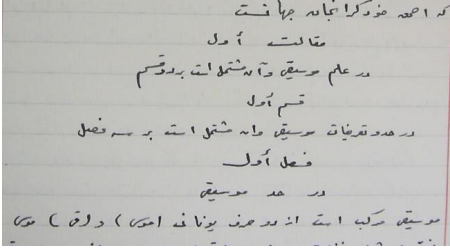 که احمق خود گرانجان جهانست
مقالت أول
در علم موسیقی و آن مشتمل است بر دو قسم
قسم أول
در حد و تعریفات موسیقی وان مشتمل است بر سه فصل
فصل أول
در حد موسیقی
موسیقی مرکب است از دو حرف یونانی (موی) و (قی)